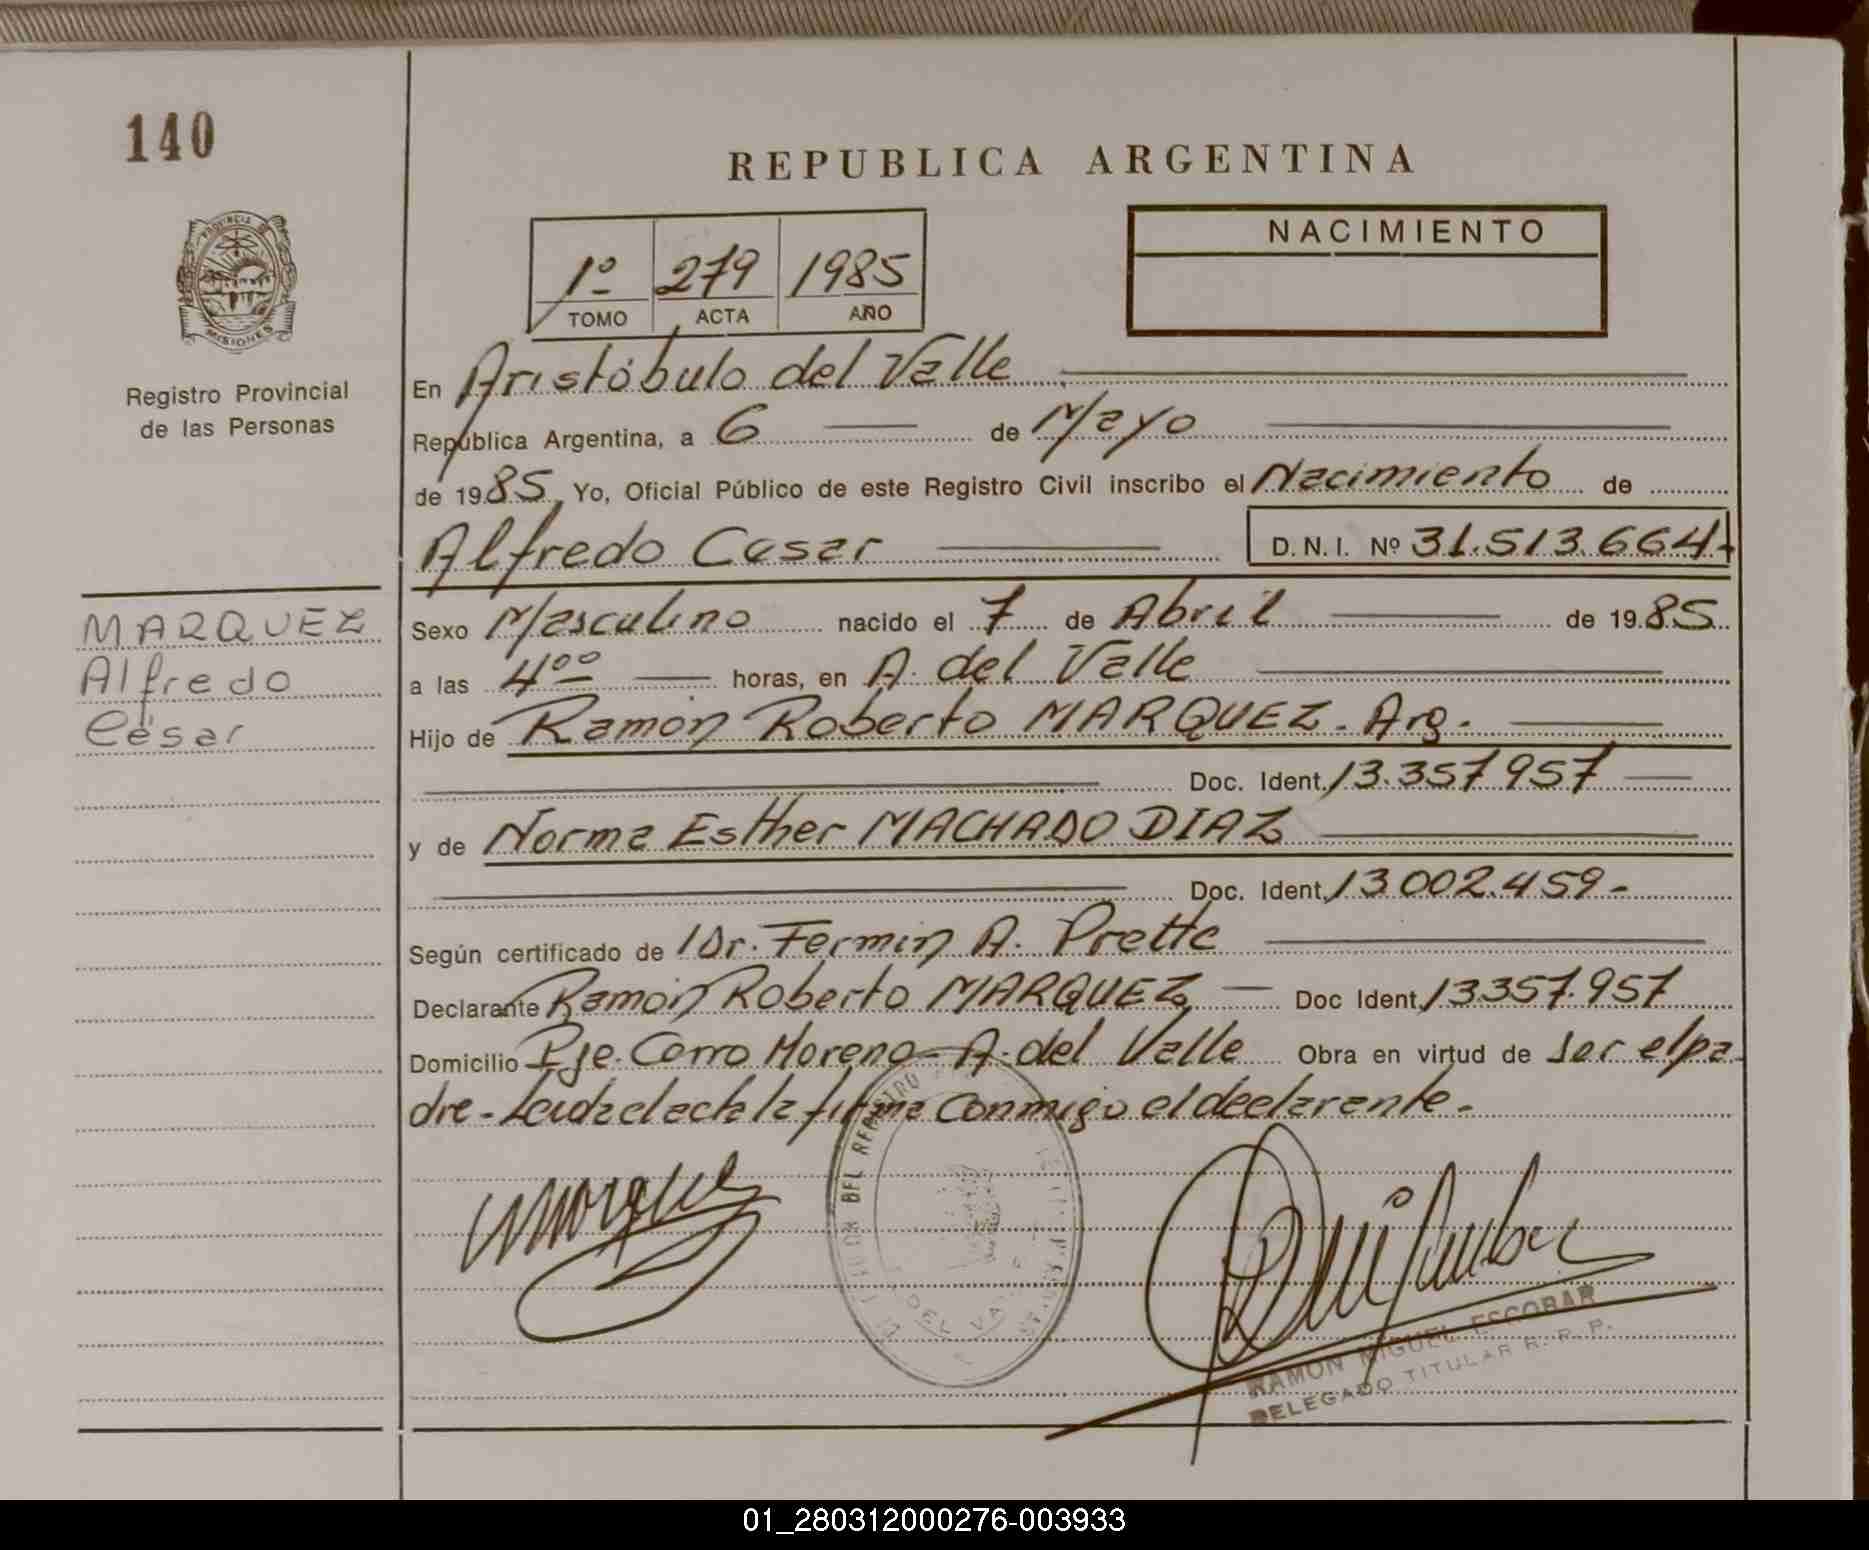 140
REPUBLICA ARGENTINA
PROVINCIA DE
MISIONES
Registro Provincial
de las Personas
1º 279 1985
TOMO ACTA AÑO
NACIMIENTO
En Aristóbulo del Valle
República Argentina, a 6 de Mayo
de 1985 Yo, Oficial Público de este Registro Civil inscribo el Nacimiento de
Alfredo Cesar D.N.I. Nº 31.513.664-
MARQUEZ
Alfredo
César
Sexo Masculino nacido el 7 de Abril de 1985
a las 4ºº horas, en A. del Valle
Hijo de Ramón Roberto MARQUEZ. Arg.
Doc. Ident. 13.357.957
y de Norma Esther MACHADO DIAZ
Doc. Ident. 13.002.459-
Según certificado de Dr. Fermin A. Prette
Declarante Ramón Roberto MARQUEZ Doc Ident. 13.357.957
Domicilio Pje. Cerro Moreno - A. del Valle Obra en virtud de ser el pa-
dre - Leida el acta la firma conmigo el declarante.
DEL REGISTRO
DEL VA
RAMON MIGUEL ESCOBAR
DELEGADO TITULAR R. P. P.
01_280312000276-003933